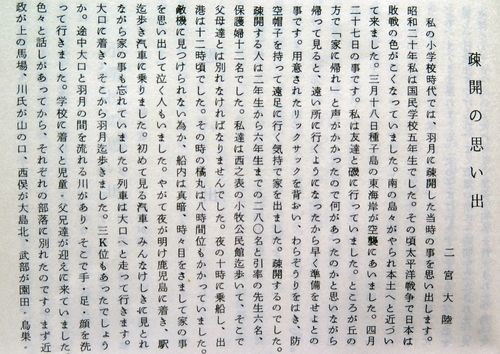 疎開の思い出
二宮大陸
私の小学校時代では、羽月に疎開した当時の事を思い出します。
昭和二十年私は国民学校五年生でした。その頃太平洋戦争で日本は
敗戦の色がこくなっていました。南の島々がやられ本土へと近づい
て来ました。三月十八日種子島の東海岸が空襲にあいました。四月
二十七日の事です。私は友達と磯に行っていました。ところが丘の
方で「家に帰れ」と声がかかったので何があったのかと思いながら
帰って見ると、遠い所に行くようになったから早く準備をせよとの
事です。用意されたリックサックを背おい、わらぞうりをはき、防
空帽子を持って遠足に行く気持で家を出ました。疎開するのでした。
疎開する人は二年生から六年生までの二八〇名と引率の先生六名、
保護婦十二名でした。私達は西之表の小牧公民館迄歩いて、そこで
父母達とは別れなければなりませんでした。夜の十時に乗船し、出
港は十二時頃でした。その時の橘丸は八時間位もかかっていました。
敵機に見つけられない為か、船内は真暗、時々目をさまして家の事
を思い出して泣く人もいました。やがて夜が明け鹿児島に着き、駅
迄歩き汽車に乗りました。初めて見る汽車、みんなけしきに見とれ
ながら家の事も忘れていました。列車は大口へと走って行きます。
大口に着き、そこから羽月迄歩きました。三K位もあったでしょう
か。途中大口と羽月の間を流れる川があり、そこで手・足・顔を洗
って行きました。学校へ着くと児童・父兄達が迎えに来ていました。
色々と話しがあってから、それぞれの部落に別れたのです。まず近
政が上の馬場、川氏が山の口、西俣が大島北、武部が園田・鳥巣・